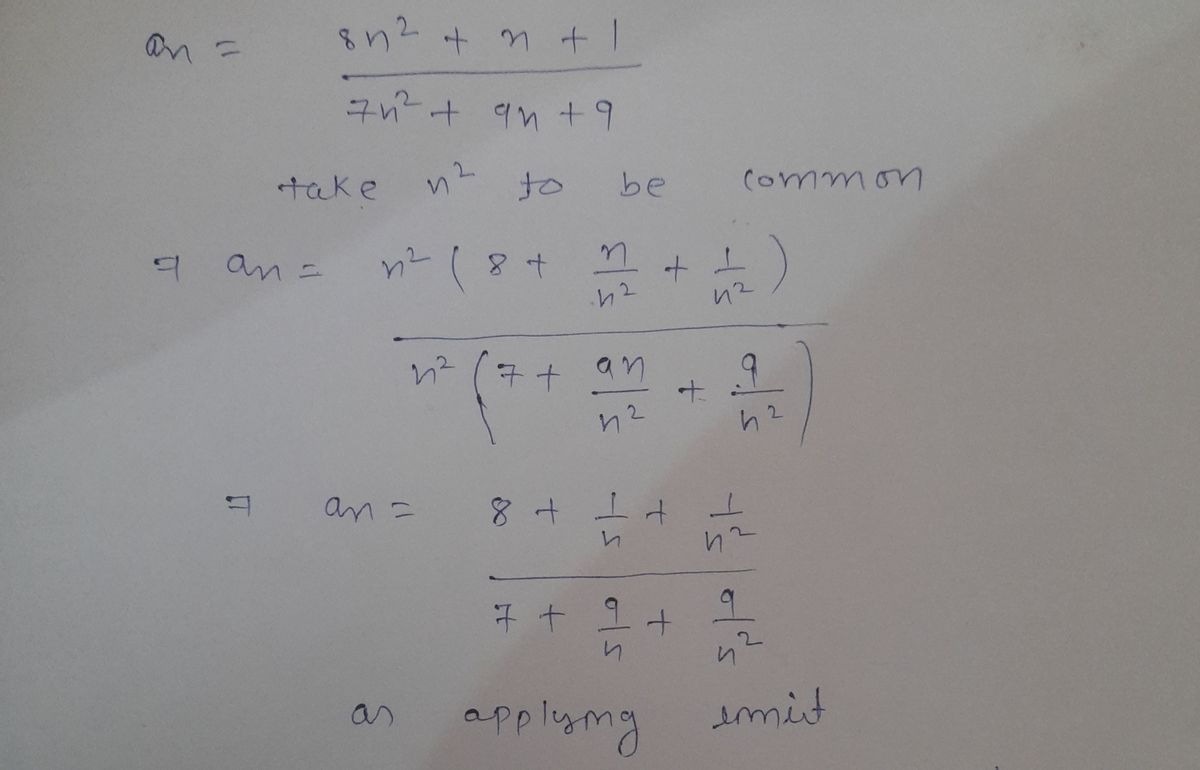 an = 8n² + n + 1
7n² + 9n + 9
take n² to be common
⇒ an = n² ( 8 + n/n² + 1/n² )
n² ( 7 + 9n/n² + 9/n² )
⇒ an = 8 + 1/n + 1/n²
7 + 9/n + 9/n²
as applying limit